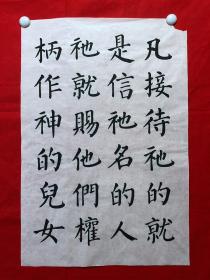 凡接待祂的就
是信祂名的人
祂就賜他們權
柄作神的兒女